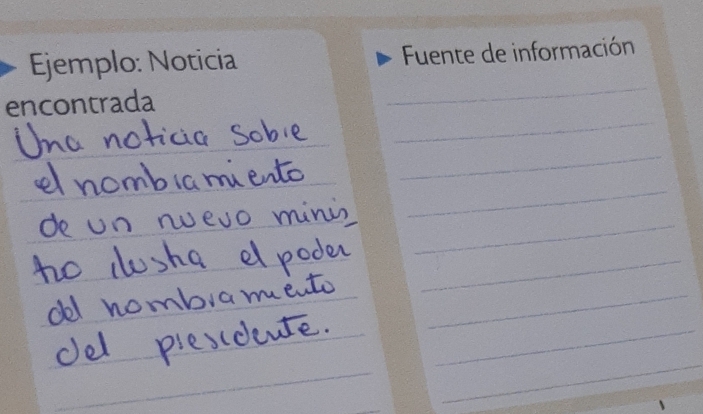 Ejemplo: Noticia
encontrada
Una noticia sobre
el nombramiento
de un nuevo minis_
tro ilustra el poder
del nombramiento
del presidente.
Fuente de información